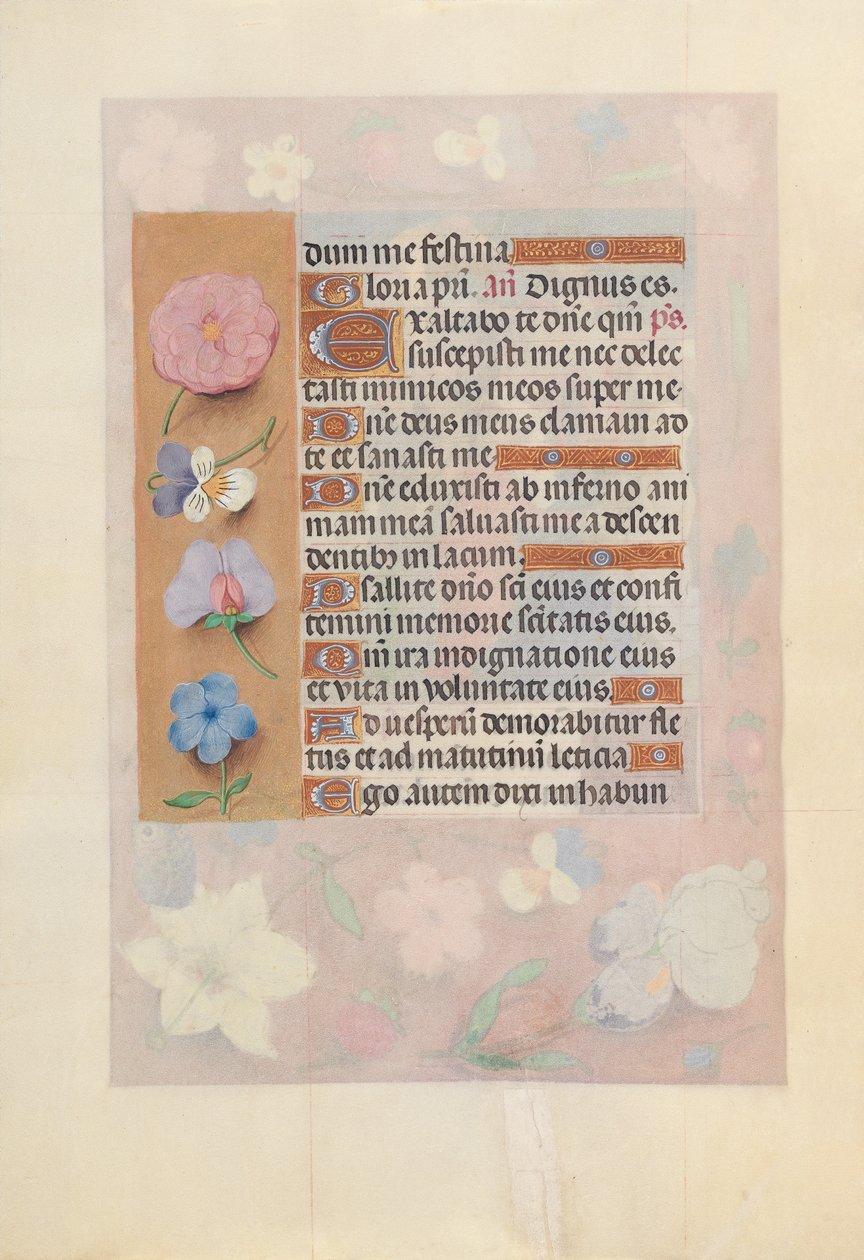 dum me festina
Gloria pr̄i. an̄ Dignus es.
Exaltabo te dn̄e qm̄ ps̄.
suscepisti me nec delec
tasti inimicos meos super me.
Dn̄e deus meus clamaui ad
te et sanasti me
Dn̄e eduxisti ab inferno ani
mam meā saluasti me a descen
dentibꝫ in lacum.
Psallite dn̄o sc̄i eius et confi
temini memorie sc̄itatis eius.
Qm̄ ira in dignatione eius
et vita in voluntate eius.
Ad uesperū demorabitur fle
tus et ad matutinū leticia
Ego autem dixi in habun